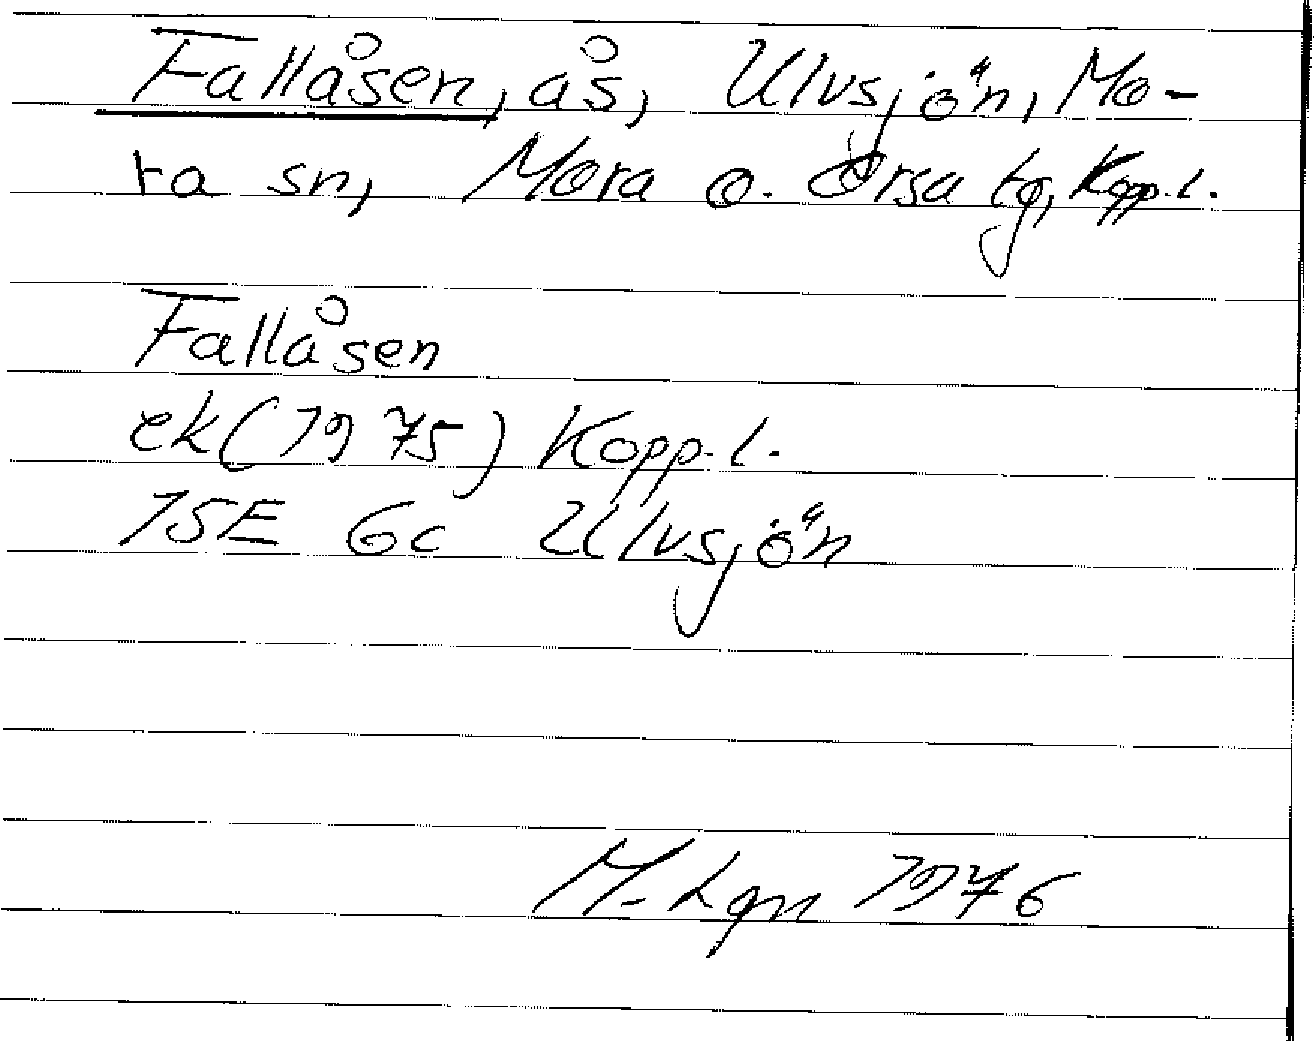 Fallåsen, ås, Ulvsjön, Mo-
ra sn, Mora o. Orsa tg, Kopp. l.
Fallåsen
ek (1975) Kopp. l.
15E 6c Ulvsjön
M. Lgn 1976